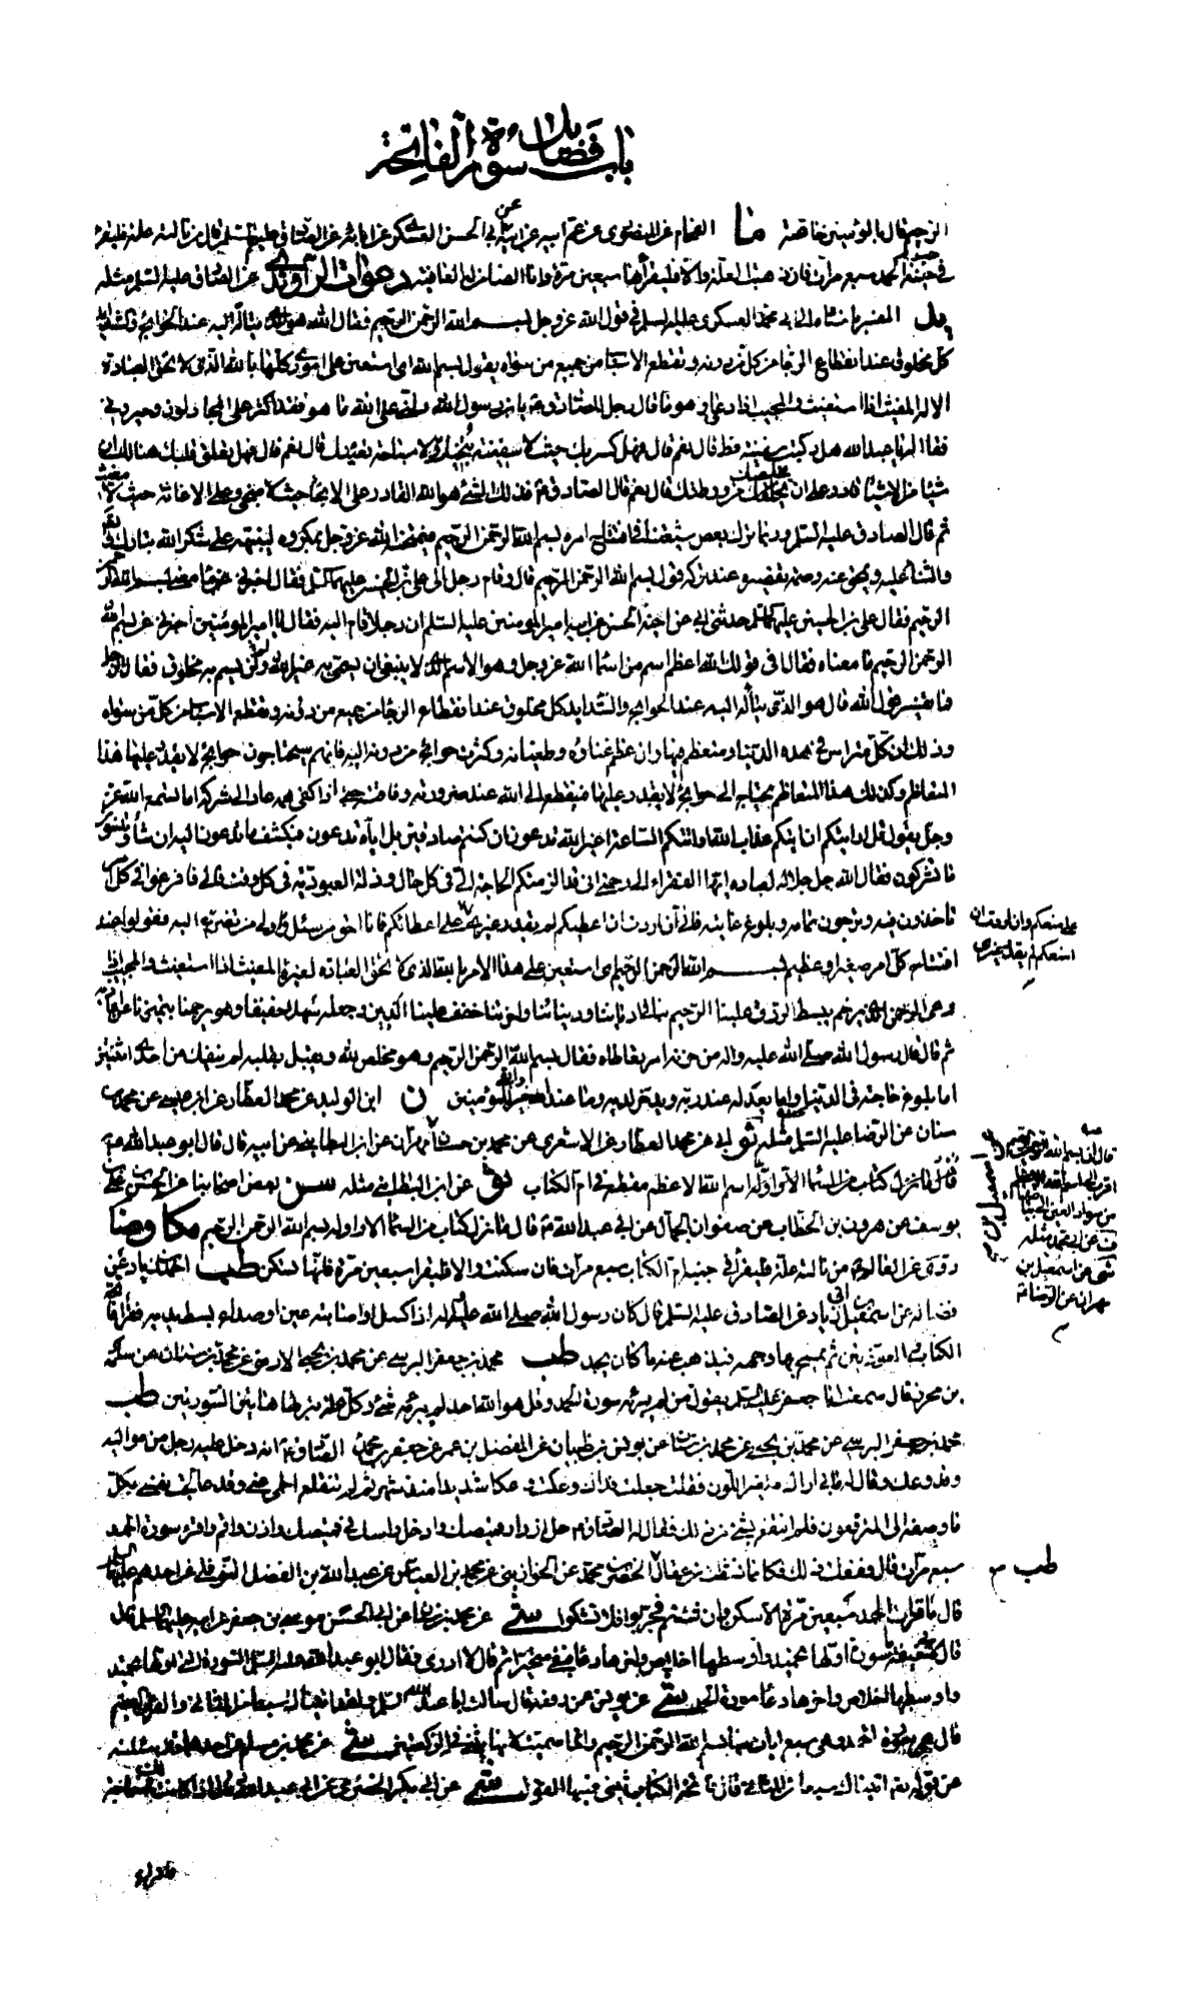 باب فضائل سورة الفاتحة
الرحيم قال بالوثنين خاصة ما الفحام عن المنصوري عن عم ابيه عن ابي الحسن العسكري عن ابائه عن الصادق عليه السلم قال من نالته علة فليقرأ
في جيبه الحمد سبع مرات فان ذهبت العلة والا فليقرأها سبعين مرة وانا الضامن له العافية دعوات الراوندي عن الصادق عليه السلم مثله
يد المفسر باسناده الى ابي محمد العسكري عليه السلم في قول الله عز وجل بسم الله الرحمن الرحيم فقال الله هو الذي يتأله اليه عند الحوائج والشدائد
كل مخلوق عند انقطاع الرجا من كل من دونه وتقطع الاسباب من جميع من سواه يقول بسم الله اي استعين على اموري كلها بالله الذي لا تحق العبادة
الا له المغيث اذا استغيث والمجيب اذا دعي وهو ما قال رجل للصادق ع يا بن رسول الله دلني على الله ما هو فقد اكثر على المجادلون وحيروني
فقال له يا عبد الله هل ركبت سفينة قط قال نعم قال فهل كسر بك حيث لا سفينة تنجيك ولا سباحة تغنيك قال نعم قال فهل تعلق قلبك هنالك ان
شيئا من الاشياء قادر على ان يخلصك من ورطتك قال نعم قال الصادق ع فذلك الشئ هو الله القادر على الانجا حيث لا منجي وعلى الاغاثة حيث لا مغيث
ثم قال الصادق عليه السلم وربما ترك بعض شيعتنا في افتتاح امره بسم الله الرحمن الرحيم فيمتحنه الله عز وجل بمكروه لينبهه على شكر الله تبارك وتعالى
والثناء عليه ويمحق عنه وصمة تقصيره عند تركه قول بسم الله الرحمن الرحيم قال وقام رجل الى علي بن الحسين عليهما السلم فقال اخبرني عن ما معنى بسم الله الرحمن
الرحيم فقال علي بن الحسين عليهما السلم حدثني ابي عن اخيه الحسن عن ابيه امير المومنين عليه السلم ان رجلا قام اليه فقال يا امير المومنين اخبرني عن بسم الله
الرحمن الرحيم ما معناه فقال ان قولك الله اعظم اسم من اسماء الله عز وجل وهو الاسم الذي لا ينبغي ان يسمى به غير الله ولن يتسم به مخلوق فقال الرجل
فما تفسير قول الله قال هو الذي يتأله اليه عند الحوائج والشدايد كل مخلوق عند انقطاع الرجا من جميع من دونه وتقطع الاسباب من كل من سواه
وذلك ان كل مترأس في هذه الدنيا ومتعظم فيها وان عظم غناؤه وطغيانه وكثرت حوائج من دونه اليه فانهم سيحتاجون حوائج لا يقدر عليها هذا
المتعاظم وكذلك هذا المتعاظم يحتاج الى حوائج لا يقدر عليها فينقطع الى الله عند ضرورته وفاقته حتى اذا كفى همه عاد الى شركه اما تسمع الله عز
وجل يقول قل ارايتكم ان اتيكم عذاب الله او اتتكم الساعة اغير الله تدعون ان كنتم صادقين بل اياه تدعون فيكشف ما تدعون اليه ان شاء وتنسون
ما تشركون فقال الله جل جلاله لعباده ايها الفقراء الى رحمتي اني قد الزمتكم الحاجة الي في كل حال وذلة العبودية في كل وقت فالي فافزعوا في كل امر
تاخذون فيه وترجون تمامه وبلوغ غايته فاني ان اردت ان اعطيكم لم يقدر غيري على اعطائكم فانا احق من سئل واولى من تضرع اليه فقولوا عند
افتتاح كل امر صغير او عظيم بسم الله الرحمن الرحيم اي استعين على هذا الامر بالله الذي لا تحق العبادة لغيره المغيث اذا استغيث والمجيب اذا
دعي الرحمن الذي يرحم ببسط الرزق علينا الرحيم بنا في ادياننا ودنيانا واخرتنا خفف علينا الدين وجعله سهلا خفيفا وهو يرحمنا
ثم قال قال رسول الله صلى الله عليه واله من حزنه امر تعاطاه فقال بسم الله الرحمن الرحيم وهو مخلص لله ويقبل بقلبه لم ينفك من احدى اثنتين
اما بلوغ حاجته في الدنيا واما يعد له عند ربه ويدخر لديه وما عند الله خير وابقى للمؤمنين ن ابن الوليد عن محمد العطار عن ابن عيسى عن محمد بن
سنان عن الرضا عليه السلم مثله ابي عن محمد العطار عن الاشعري عن محمد بن حسان عن ابن البطايني عن ابيه قال قال ابو عبد الله ع
اسم الله الاعظم مقطع في ام الكتاب عن ابن البطايني مثله سن بعض اصحابنا عن الحسن بن علي بن
يوسف عن هرون بن الخطاب عن صفوان الجمال عن ابي عبد الله ع قال ما نزل كتاب من السماء الا واوله بسم الله الرحمن الرحيم مكا
من نالته علة فليقرأ في جيبه ام الكتاب سبع مرات فان سكنت والا فليقرأ سبعين مرة فانها تسكن طب احمد بن زياد عن
فضالة عن اسمعيل بن ابي زياد عن الصادق عليه السلم قال كان رسول الله صلى الله عليه واله اذا كسل او اصابته عين او صداع بسط يديه فقرأ فاتحة
الكتاب والمعوذتين ثم يمسح بهما وجهه فيذهب عنه ما كان يجد طب محمد بن جعفر البرسي عن محمد بن يحيى الارمني عن محمد بن سنان عن سلمة
بن محرز قال سمعت ابا جعفر عليه السلم يقول من لم يبرئه سورة الحمد وقل هو الله احد لم يبرئه شئ وكل علة تبرئها هاتين السورتين طب
محمد بن جعفر البرسي عن محمد بن يحيى عن محمد بن سنان عن يونس بن ظبيان عن المفضل بن عمر عن جعفر بن محمد الصادق ع انه دخل عليه رجل من مواليه
وقد وعك وقال له مالي اراك متغير اللون فقلت جعلت فداك وعكت وعكا شديدا منذ شهر ثم لم تنقلع الحمى عني وقد عالجت نفسي بكل
ما وصفه الي المترفعون فلم انتفع بشئ من ذلك فقال له الصادق ع حل ازرار قميصك وادخل راسك في قميصك واذن واقم واقرء سورة الحمد
سبع مرات قال ففعلت ذلك فكانما نشطت من عقال الخضر بن محمد عن الخرازيني عن محمد بن العباس عن عبد الله بن الفضل النوفلي عن احدهم عليهم السلم
قال ما قرات الحمد سبعين مرة الا سكن وان شئتم فجربوا ولا تشكوا شي عن محمد بن سنان عن ابي الحسن موسى بن جعفر عن ابيه عليهما السلم قال
قال لابي حنيفة ما سورة اولها تحميد واوسطها اخلاص واخرها دعاء فبقي متحيرا ثم قال لا ادري فقال ابو عبد الله عليه السلم السورة التي اولها تحميد
واوسطها اخلاص واخرها دعاء سورة الحمد شي عن يونس
قال هي سورة الحمد وهي سبع ايات منها بسم الله الرحمن الرحيم وانما سميت المثاني لانها يثنى في الركعتين شي عن محمد بن مسلم عن احدهما قال سئلته
عن قوله اتيناك سبعا من المثاني قال فاتحة الكتاب يثنى فيها القول شي عن ابي بكر الحضرمي عن ابي عبد الله
على منعكم وان اردت ان
امنعكم لم يقدر غيري
قال ان بسم الله الرحمن الرحيم
اقرب الى اسم الله الاعظم
من سواد العين الى بياضها
ابي محمد مثله
شي عن اسمعيل بن
مهران عن الرضا ع
طب
فاقراء